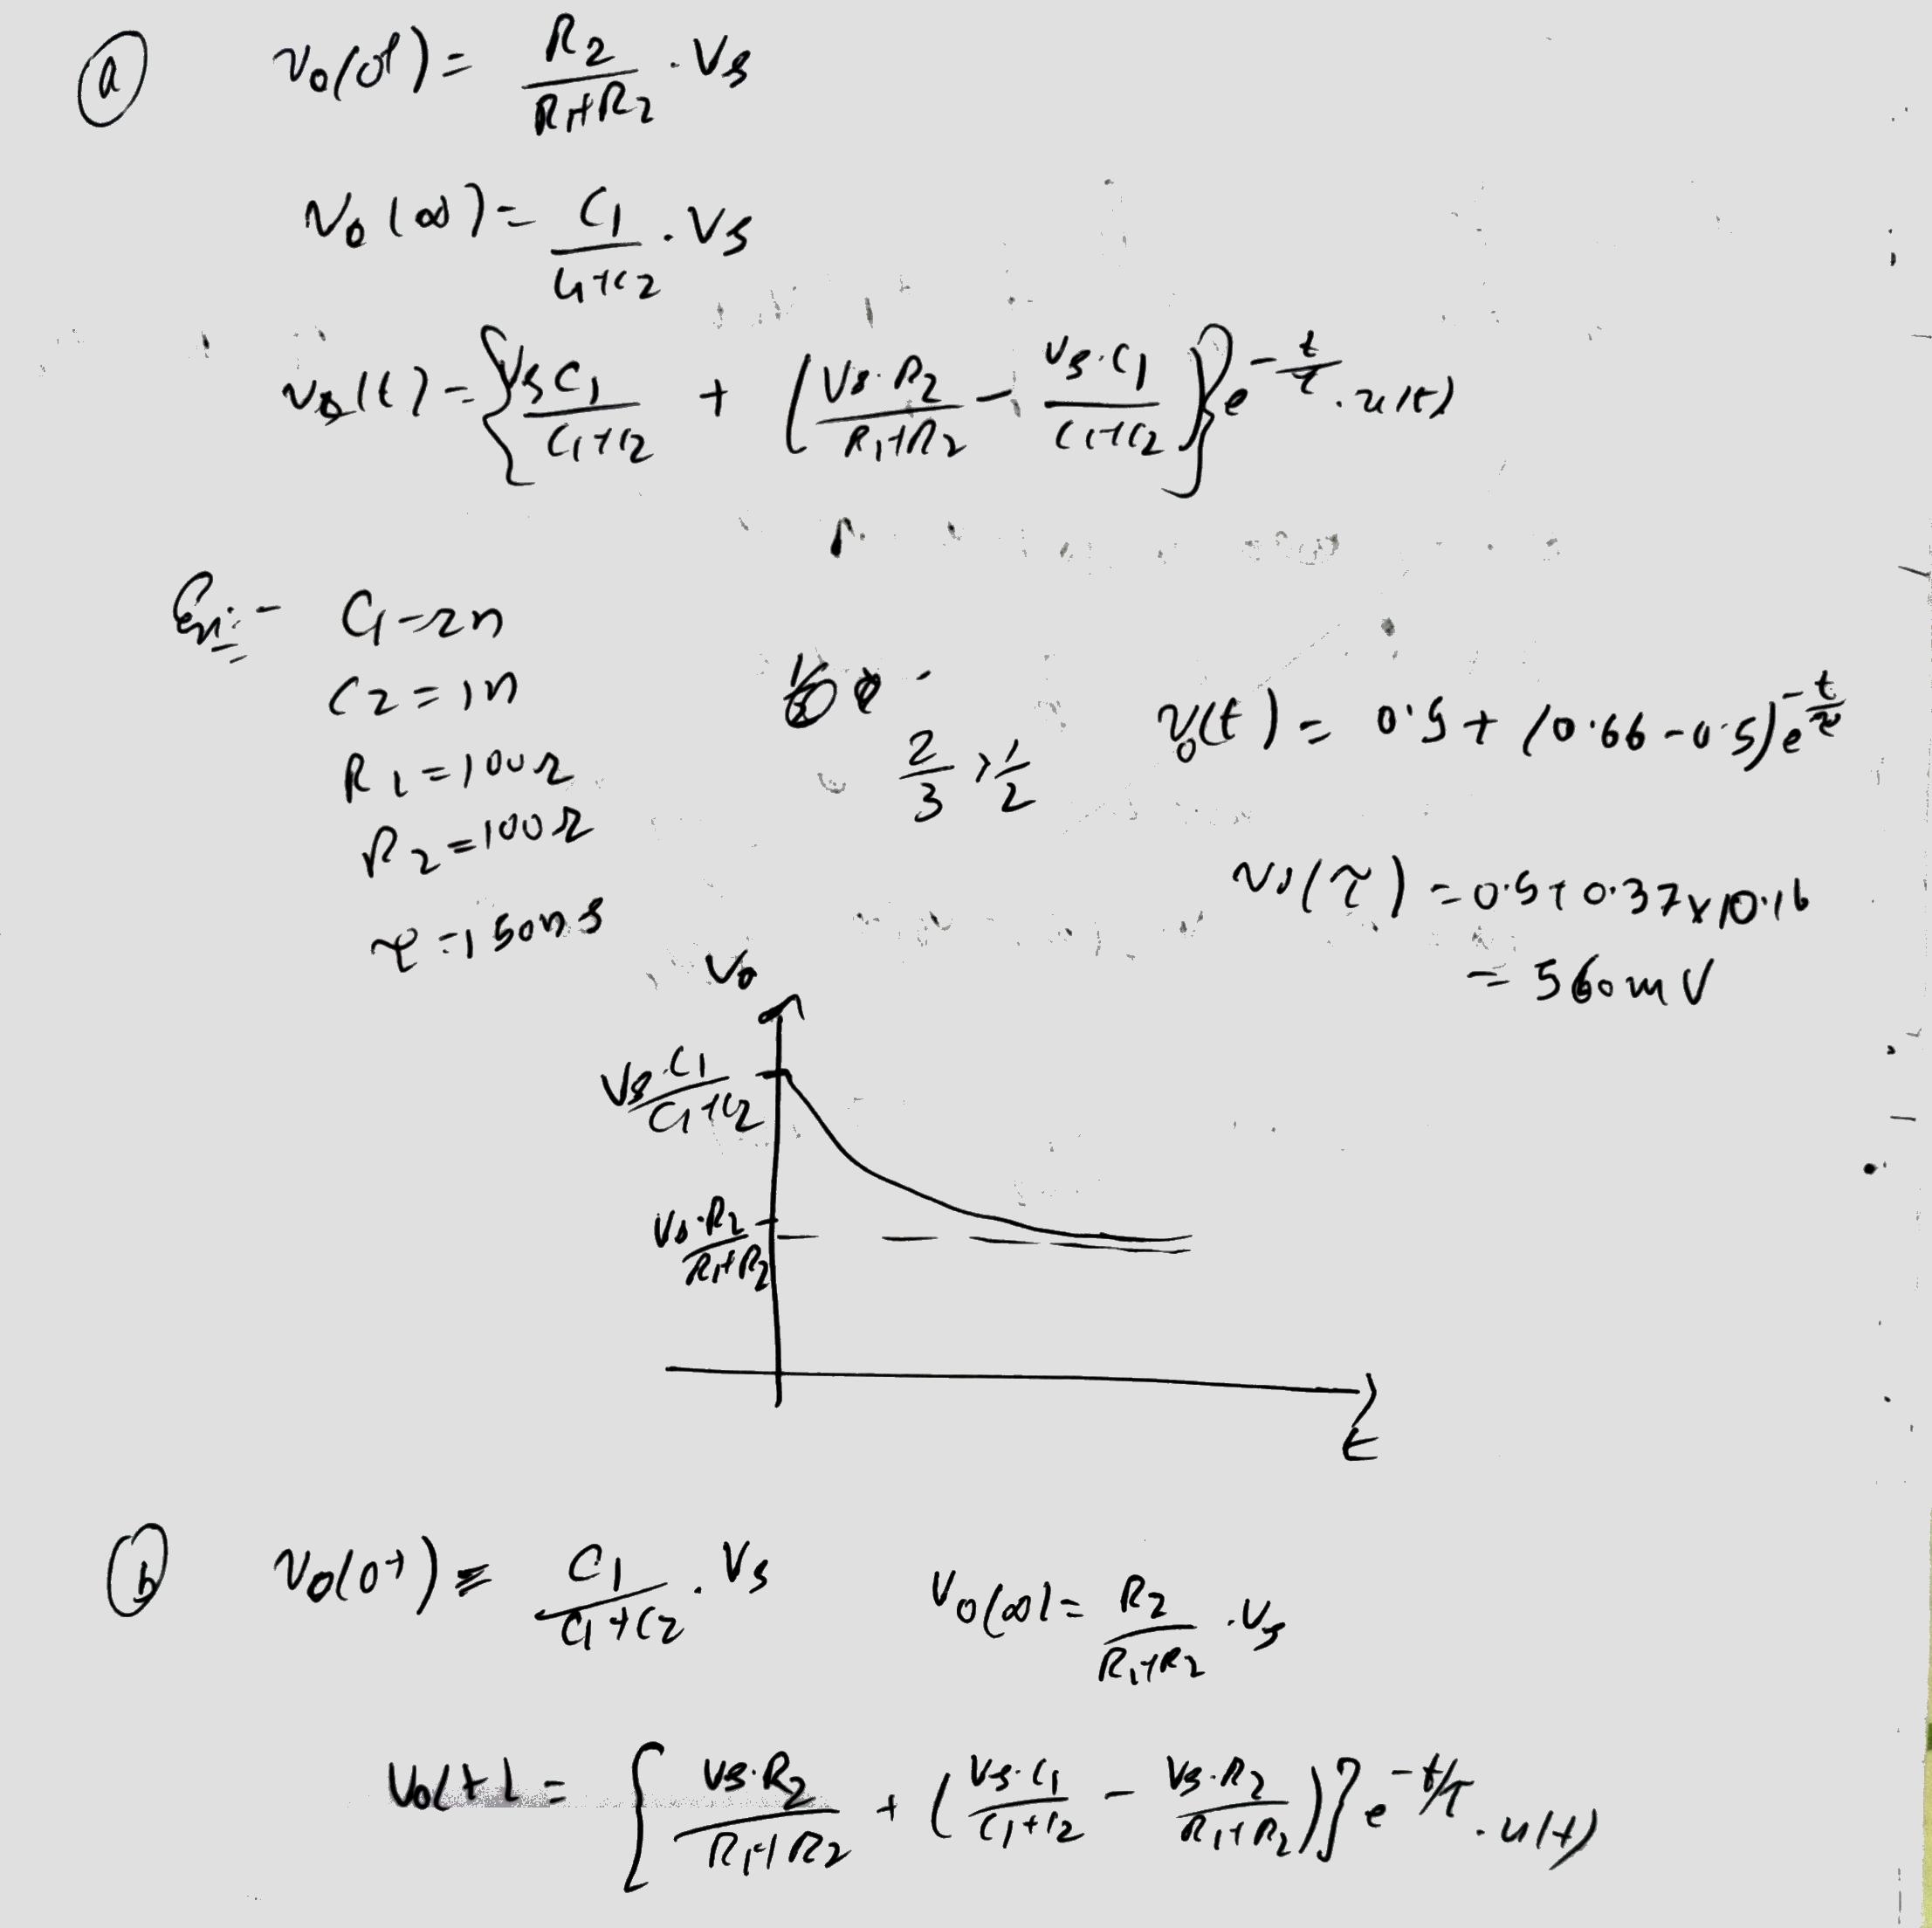 (a) v₀(0⁺) = R₂/(R₁+R₂) · Vs
v₀(∞) = C₁/(C₁+C₂) · Vs
v₀(t) = {VsC₁/(C₁+C₂) + (Vs·R₂/(R₁+R₂) − Vs·C₁/(C₁+C₂))}e^(−t/τ) · u(t)
Ex:- C₁=2n
C₂=1n
R₁=100Ω
R₂=100Ω
τ=150ns
2/3 > 1/2
v₀(t) = 0.5 + (0.66−0.5)e^(−t/τ)
v₀(τ) = 0.5+0.37×0.16
= 560mV
V₀
Vs·C₁/(C₁+C₂)
Vs·R₂/(R₁+R₂)
t
(b) v₀(0⁺) = C₁/(C₁+C₂) · Vs V₀(∞) = R₂/(R₁+R₂) · Vs
V₀(t) = {Vs·R₂/(R₁+R₂) + (Vs·C₁/(C₁+C₂) − Vs·R₂/(R₁+R₂))}e^(−t/τ) · u(t)